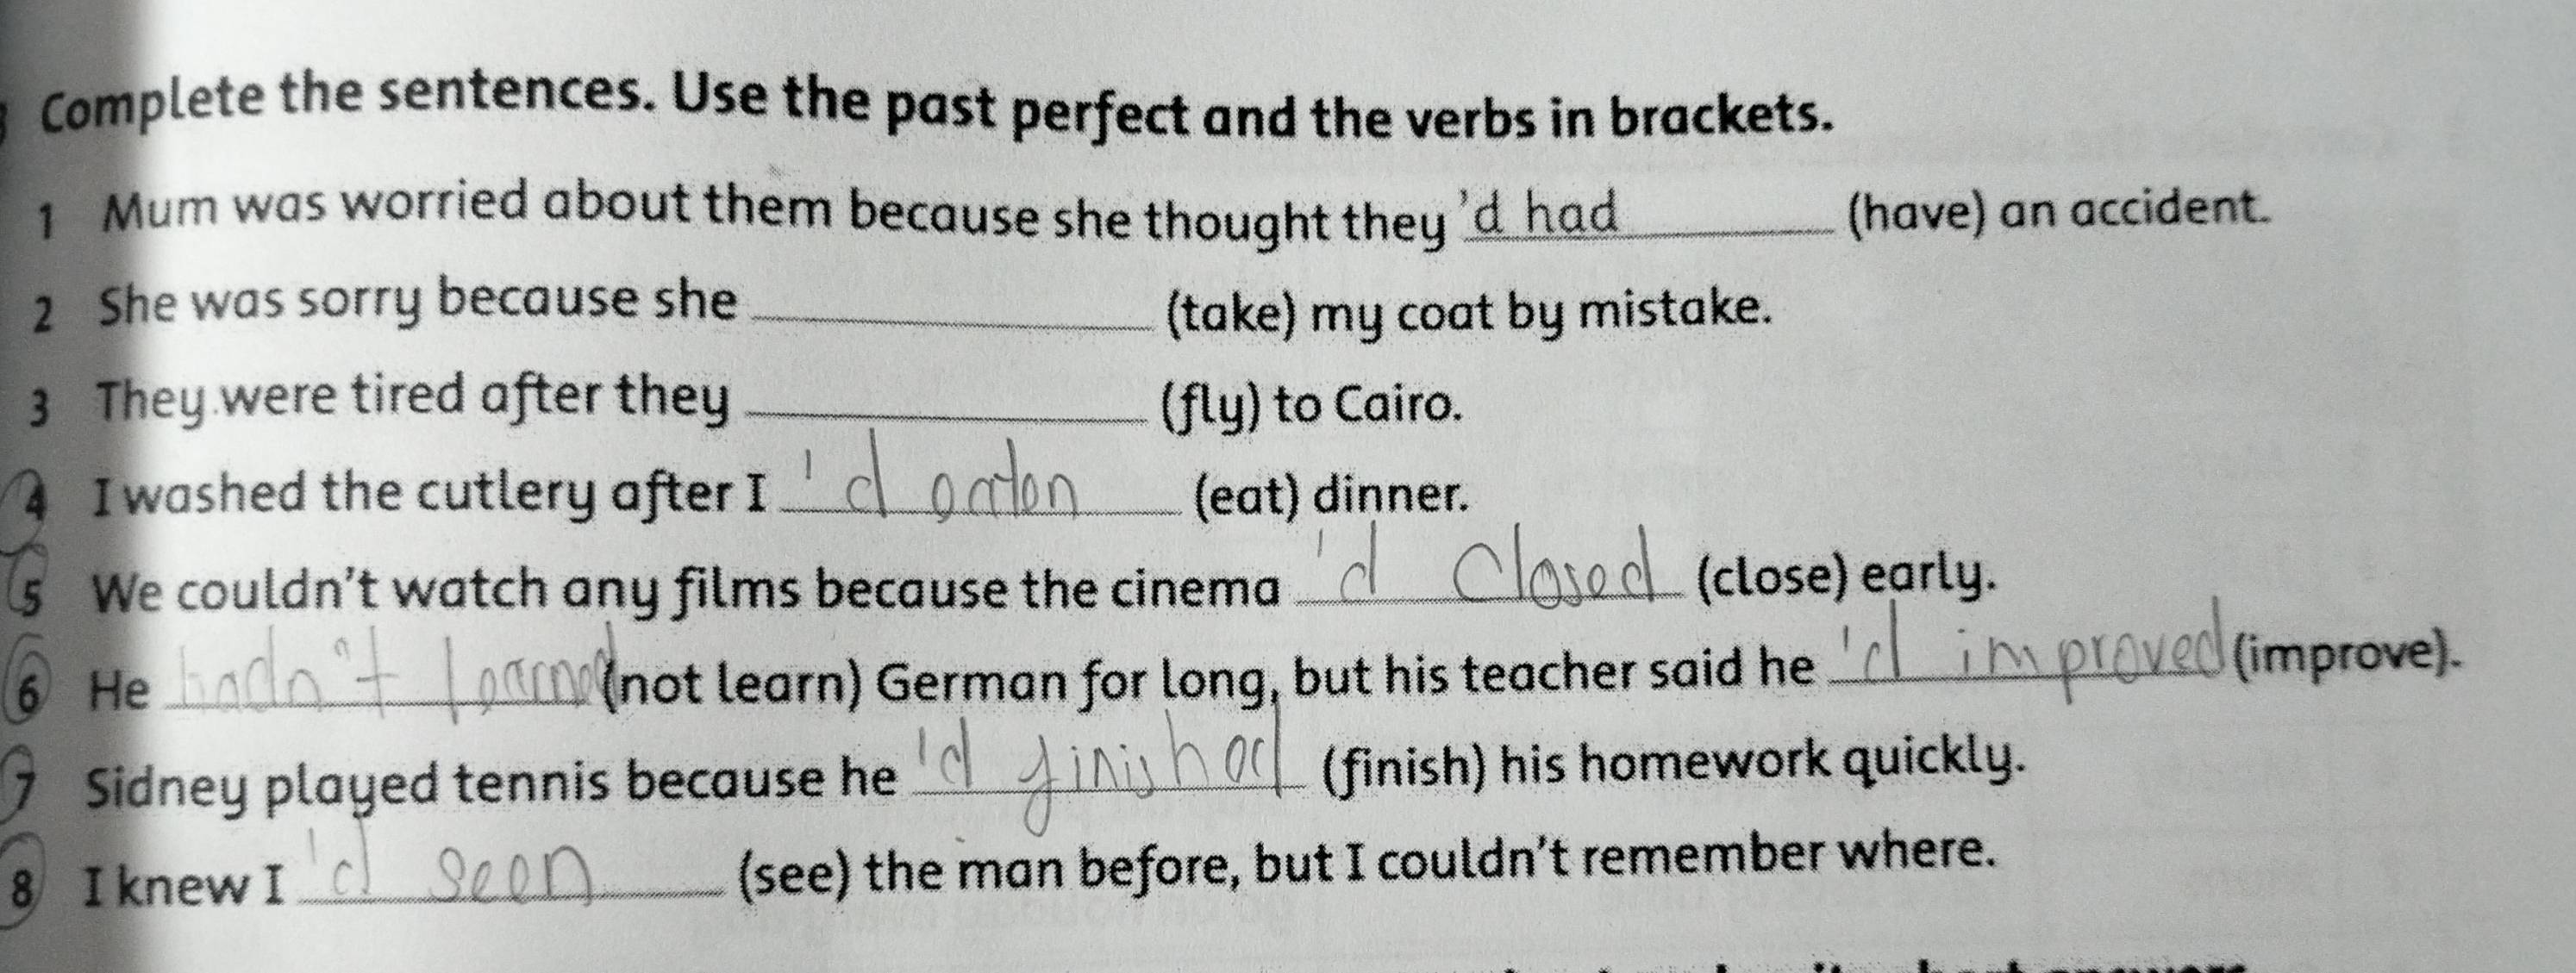 Complete the sentences. Use the past perfect and the verbs in brackets.
1 Mum was worried about them because she thought they 'd had (have) an accident.
2 She was sorry because she ____ (take) my coat by mistake.
3 They were tired after they ____ (fly) to Cairo.
4 I washed the cutlery after I 'd eaten (eat) dinner.
5 We couldn't watch any films because the cinema 'd closed (close) early.
6 He hadn't learned (not learn) German for long, but his teacher said he 'd improved (improve).
7 Sidney played tennis because he 'd finished (finish) his homework quickly.
8 I knew I 'd seen (see) the man before, but I couldn't remember where.